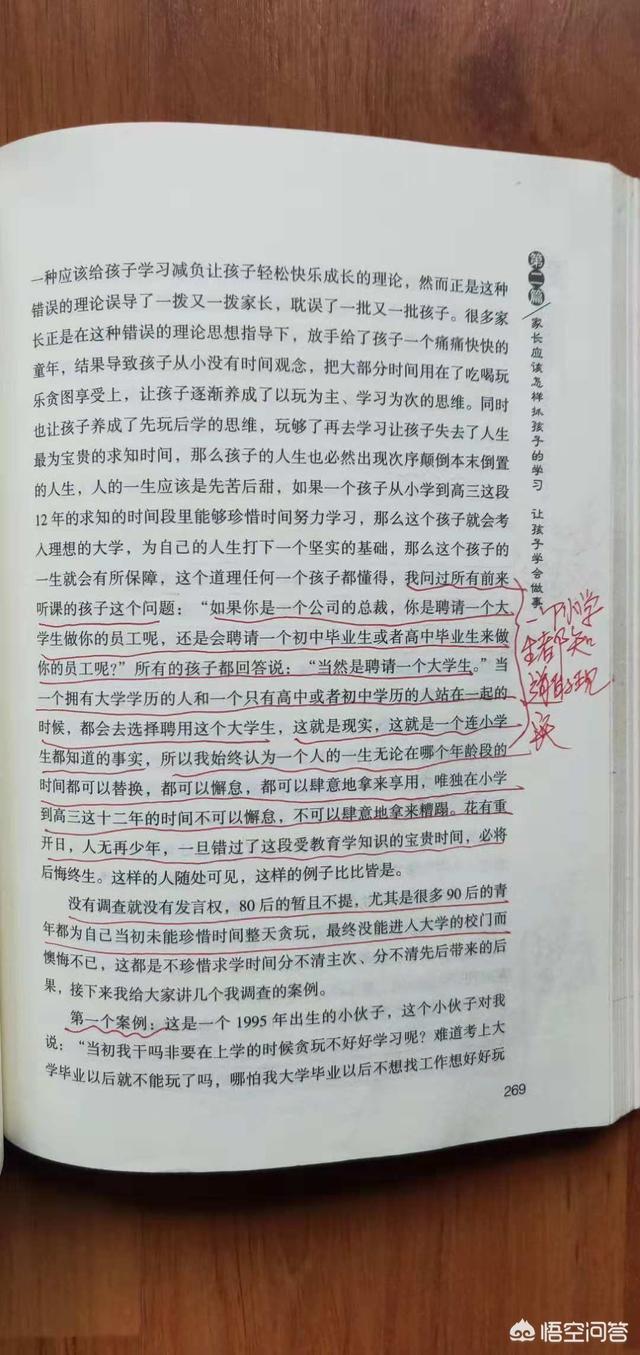 一种应该给孩子学习减负让孩子轻松快乐成长的理论，然而正是这种
错误的理论误导了一拨又一拨家长，耽误了一批又一批孩子。很多家
长正是在这种错误的理论思想指导下，放手给了孩子一个痛痛快快的
童年，结果导致孩子从小没有时间观念，把大部分时间用在了吃喝玩
乐贪图享受上，让孩子逐渐养成了以玩为主、学习为次的思维。同时
也让孩子养成了先玩后学的思维，玩够了再去学习让孩子失去了人生
最为宝贵的求知时间，那么孩子的人生也必然出现次序颠倒本末倒置
的人生，人的一生应该是先苦后甜，如果一个孩子从小学到高三这段
12年的求知的时间段里能够珍惜时间努力学习，那么这个孩子就会考
入理想的大学，为自己的人生打下一个坚实的基础，那么这个孩子的
一生就会有所保障，这个道理任何一个孩子都懂得，我问过所有前来
听课的孩子这个问题：“如果你是一个公司的总裁，你是聘请一个大
学生做你的员工呢，还是会聘请一个初中毕业生或者高中毕业生来做
你的员工呢？”所有的孩子都回答说：“当然是聘请一个大学生。”当
一个拥有大学学历的人和一个只有高中或者初中学历的人站在一起的
时候，都会去选择聘用这个大学生，这就是现实，这就是一个连小学
生都知道的事实，所以我始终认为一个人的一生无论在哪个年龄段的
时间都可以替换，都可以懈怠，都可以肆意地拿来享用，唯独在小学
到高三这十二年的时间不可以懈怠，不可以肆意地拿来糟蹋。花有重
开日，人无再少年，一旦错过了这段受教育学知识的宝贵时间，必将
后悔终生。这样的人随处可见，这样的例子比比皆是。
没有调查就没有发言权，80后的暂且不提，尤其是很多90后的青
年都为自己当初未能珍惜时间整天贪玩，最终没能进入大学的校门而
懊悔不已，这都是不珍惜求学时间分不清主次、分不清先后带来的后
果，接下来我给大家讲几个我调查的案例。
第一个案例：这是一个1995年出生的小伙子，这个小伙子对我
说：“当初我干吗非要在上学的时候贪玩不好好学习呢？难道考上大
学毕业以后就不能玩了吗，哪怕我大学毕业以后不想找工作想好好玩
269
第二篇
家长应该怎样抓孩子的学习 让孩子学会做事
一个小学
生都知
悟空问答